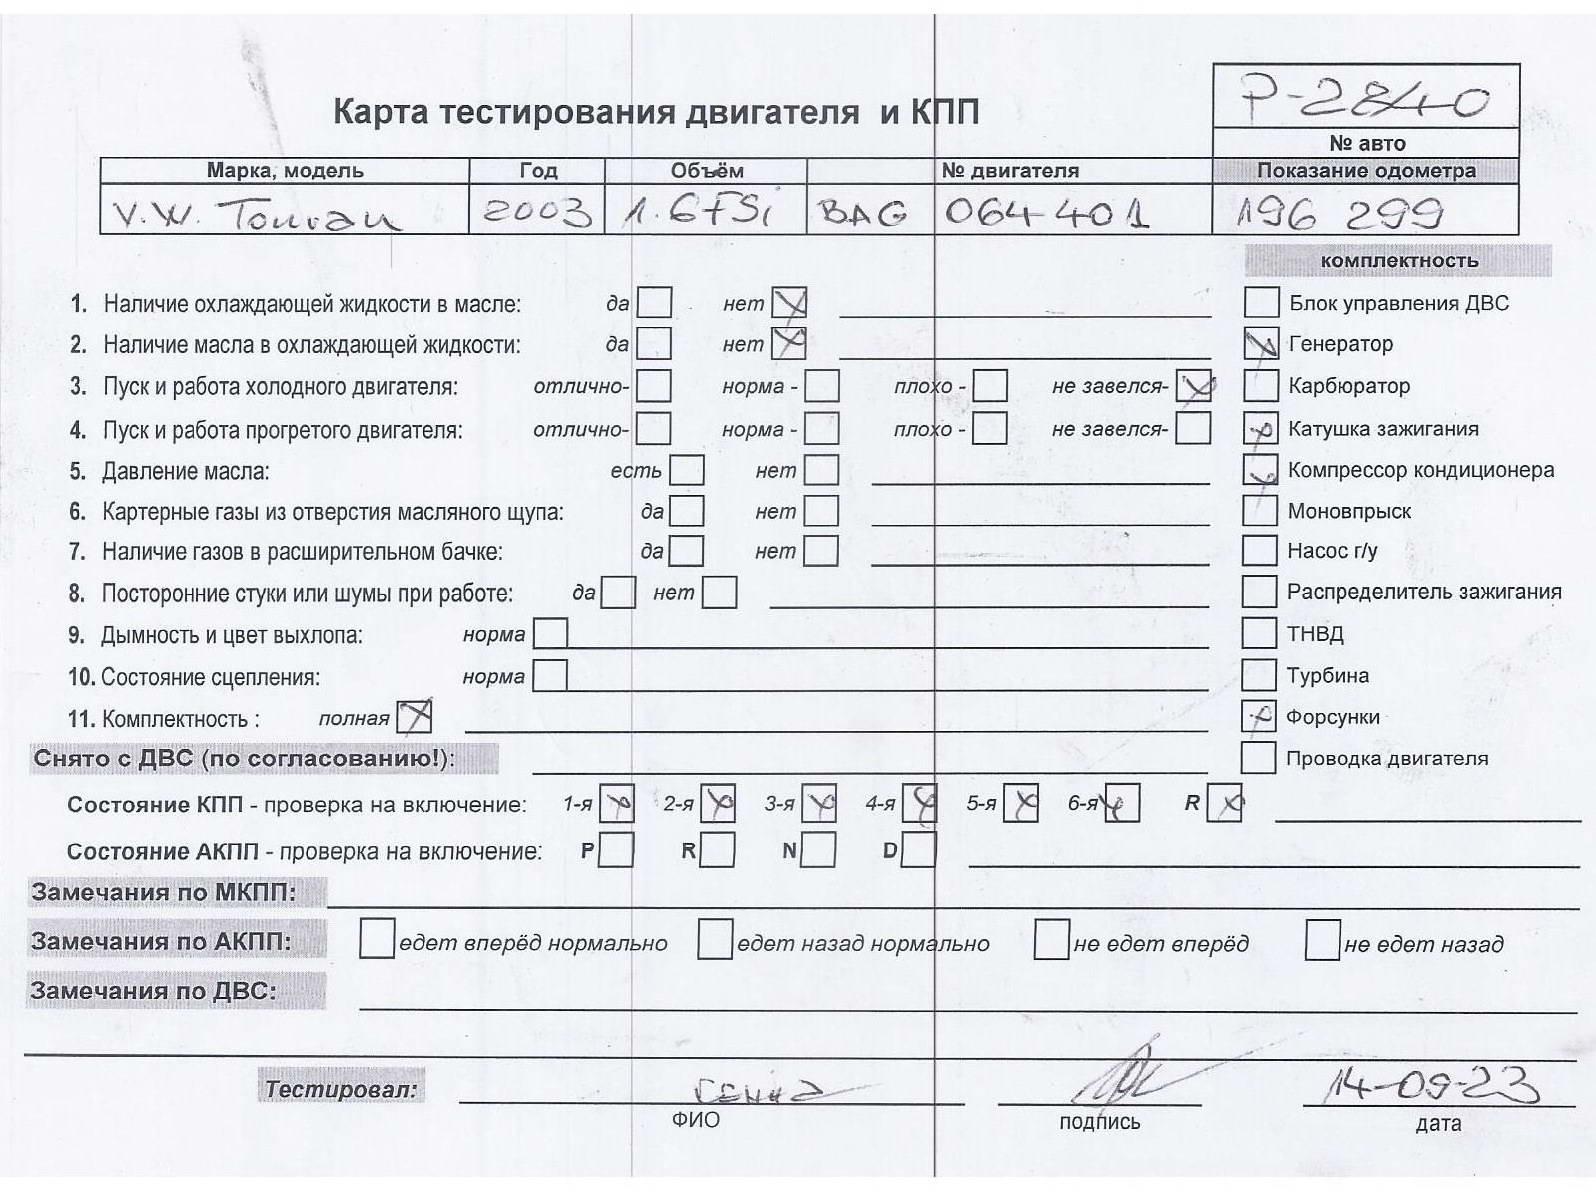 P-2840
Карта тестирования двигателя и КПП
№ авто
Марка, модель Год Объём № двигателя Показание одометра
V.W. Touran 2003 1.6FSi BAG 064401 196 299
комплектность
1. Наличие охлаждающей жидкости в масле: да нет Блок управления ДВС
2. Наличие масла в охлаждающей жидкости: да нет Генератор
3. Пуск и работа холодного двигателя: отлично- норма - плохо - не завелся- Карбюратор
4. Пуск и работа прогретого двигателя: отлично- норма - плохо - не завелся- Катушка зажигания
5. Давление масла: есть нет Компрессор кондиционера
6. Картерные газы из отверстия масляного щупа: да нет Моновпрыск
7. Наличие газов в расширительном бачке: да нет Насос г/у
8. Посторонние стуки или шумы при работе: да нет Распределитель зажигания
9. Дымность и цвет выхлопа: норма ТНВД
10. Состояние сцепления: норма Турбина
11. Комплектность : полная Форсунки
Снято с ДВС (по согласованию!): Проводка двигателя
Состояние КПП - проверка на включение: 1-я 2-я 3-я 4-я 5-я 6-я R
Состояние АКПП - проверка на включение: P R N D
Замечания по МКПП:
Замечания по АКПП: едет вперёд нормально едет назад нормально не едет вперёд не едет назад
Замечания по ДВС:
Тестировал: Гена 14-09-23
ФИО подпись дата